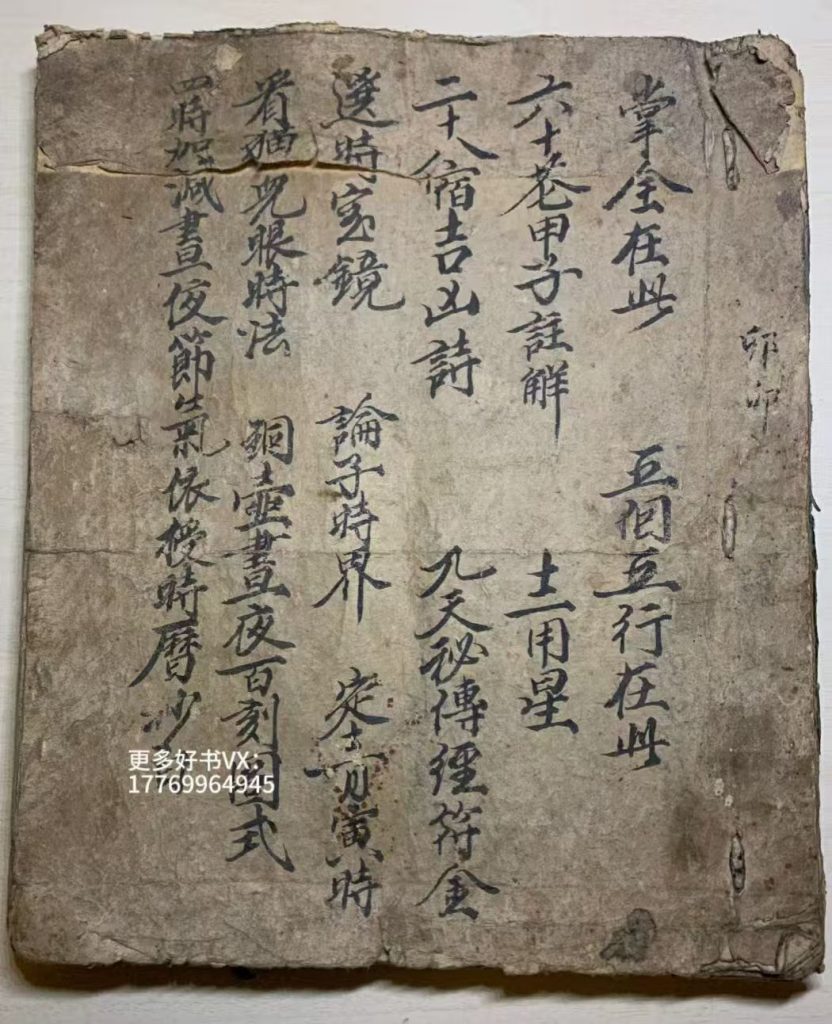 卯卯
掌全在此 五個五行在此
六十花甲子註解 十二用星
二十八宿吉凶詩 九天秘傳經符全
選時宝鏡 論子時界 定十二月寅時
看猫兒眼時法 銅壺晝夜百刻圖式
四時加減晝夜節氣依授時曆
更多好书VX：
17769964945